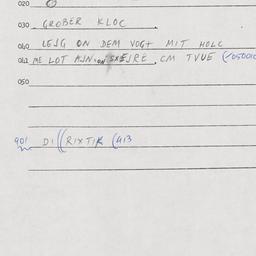 020
030 GROBER KLOC
040 LEJG ON DEM VOGT MIT HOLC
041 ME LOT CM TVUE
050
901 DI RIXTIK (413